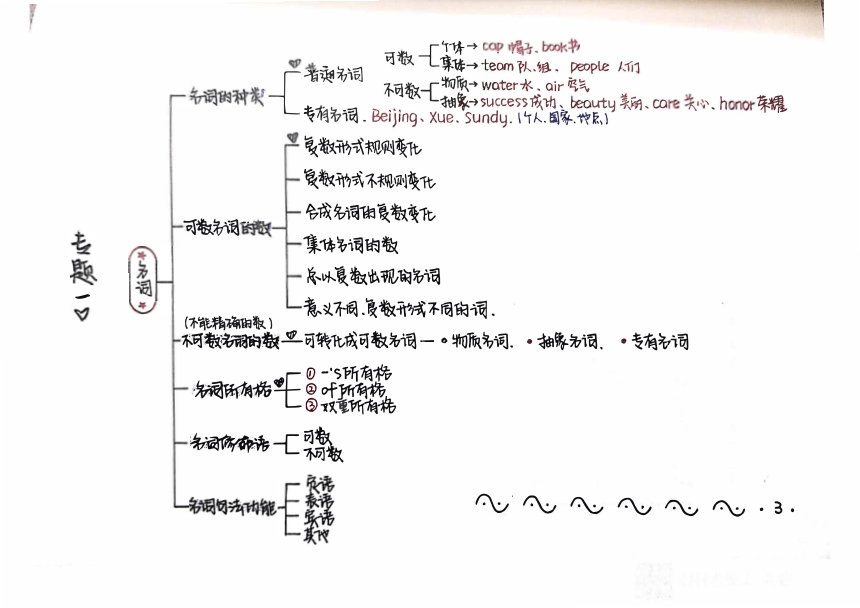 专题一
名词
名词的种类
普通名词
可数
个体→cap 帽子、book书
集体→team 队、组、people 人们
不可数
物质→water 水、air 空气
抽象→success成功、beauty 美丽、care 关心、honor 荣耀
专有名词、Beijing、Xue、Sundy.(个人.国家.地点)
可数名词的数
复数形式规则变化
复数形式不规则变化
合成名词的复数变化
集体名词的数
总以复数出现的名词
意义不同.复数形式不同的词.
(不能精确的数)
不可数名词的数
可转化成可数名词—•物质名词、•抽象名词、•专有名词
名词所有格
① -'s所有格
② of所有格
③ 双重所有格
名词修饰语
可数
不可数
名词句法功能
定语
表语
宾语
其他
.3.